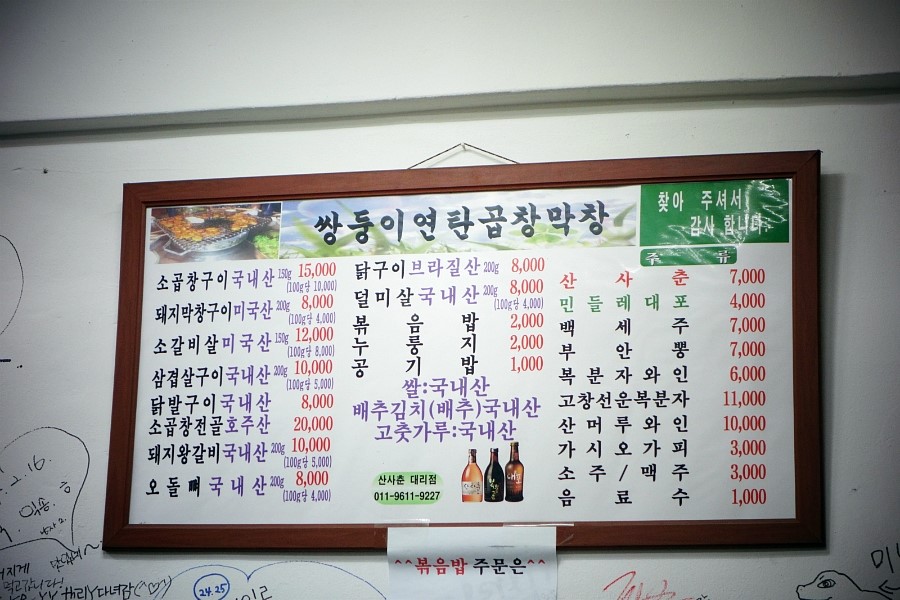 쌍둥이연탄곱창막창
찾아 주셔서
감사 합니다.
소곱창구이국내산 150g 15,000
(100g당 10,000)
돼지막창구이미국산 200g 8,000
(100g당 4,000)
소갈비살미국산 150g 12,000
(100g당 8,000)
삼겹살구이국내산 200g 10,000
(100g당 5,000)
닭발구이국내산 8,000
소곱창전골호주산 20,000
돼지왕갈비국내산 200g 10,000
(100g당 5,000)
오돌뼈국내산 200g 8,000
(100g당 4,000)
닭구이브라질산 200g 8,000
덜미살국내산 200g 8,000
(100g당 4,000)
볶음밥 2,000
누룽지 2,000
공기밥 1,000
쌀:국내산
배추김치(배추)국내산
고춧가루:국내산
산사춘 대리점
011-9611-9227
주류
산사춘 7,000
민들레대포 4,000
백세주 7,000
부안뽕 7,000
복분자와인 6,000
고창선운복분자 11,000
산머루와인 10,000
가시오가피 3,000
소주/맥주 3,000
음료수 1,000
^^볶음밥 주문은^^
2.16.
24.25